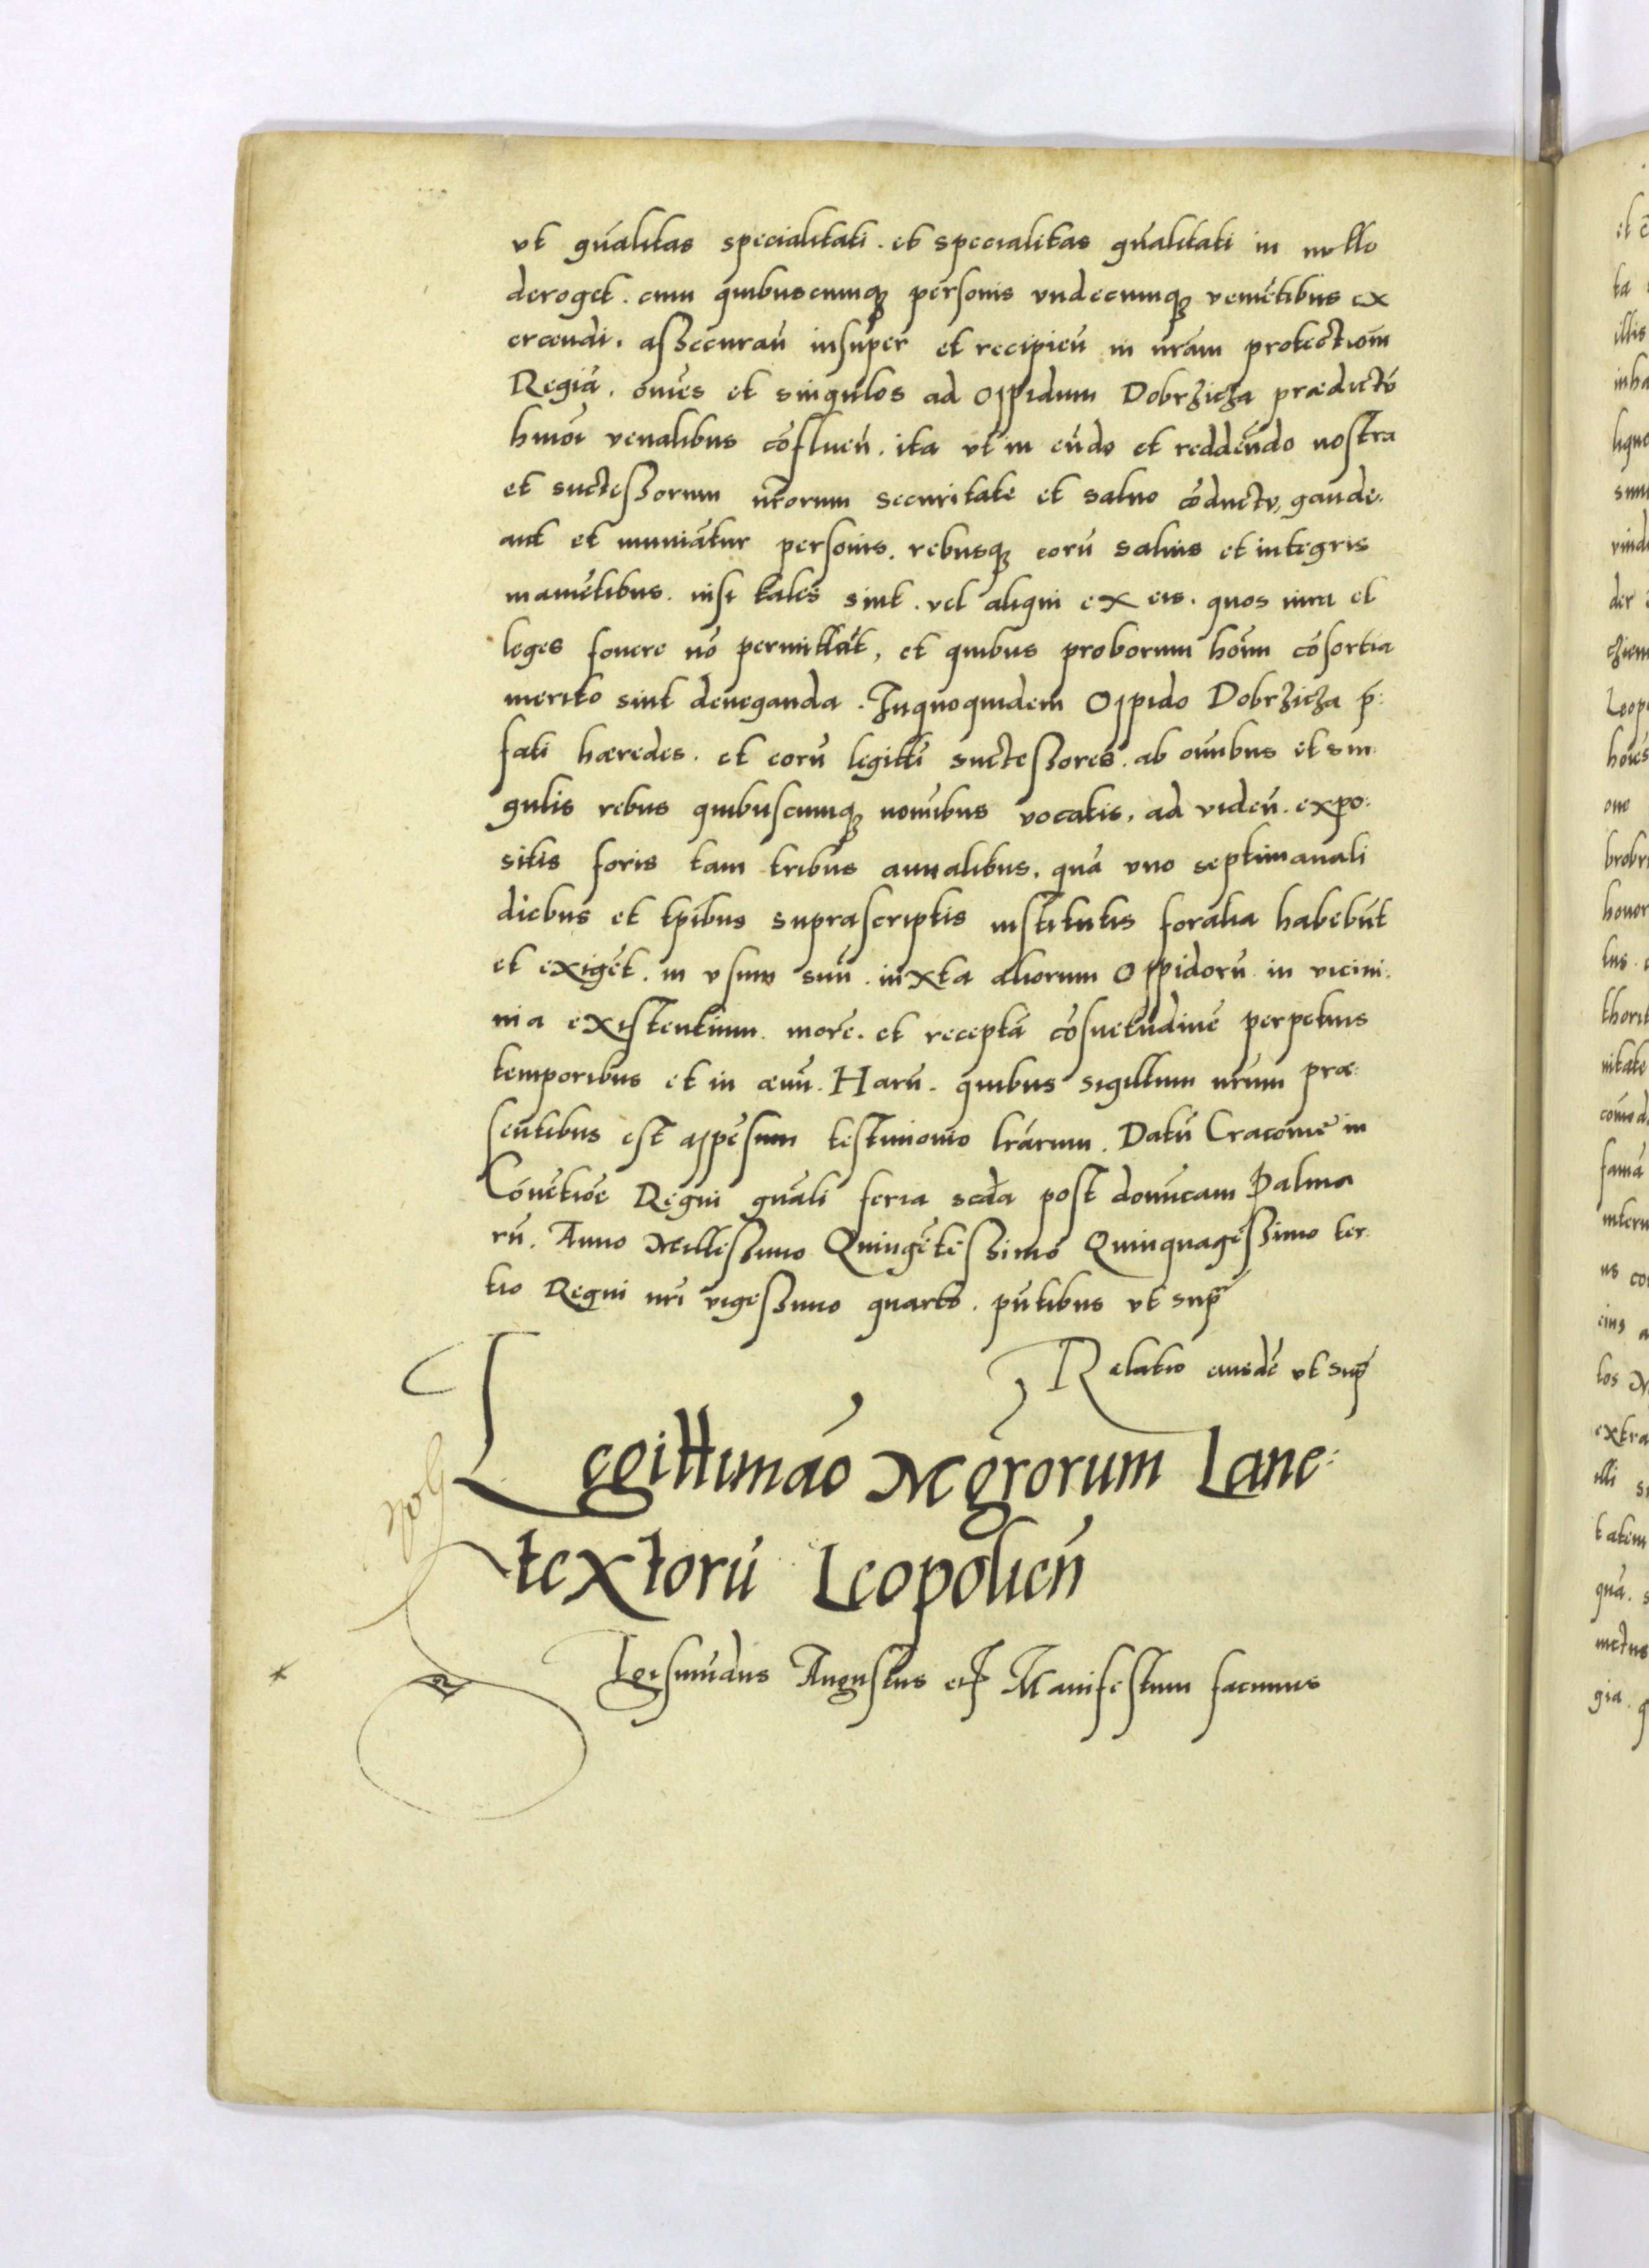 vt gn̄alitas specialitati. et specialitas gn̄alitati in nullo
deroget. cum quibuscumq̨ personis vndecumq̨ veniētibus ex
ercendi. assecuran̄ insuper et recipien̄ in nr̄am protectiom̄
Regiā. om̄es et singulos ad Oppidum Dobrzicza prædictū
hmōi venalibus cōfluen̄. ita vt in eūdo et reddēundo nostra
et successorum nr̄orum securitate et saluo cōductu, gaude.
ant et muniātur personis. rebusq̨ eorū saluis et integris
manētibus. nisi tales sint. vel aliqui ex eis. quos iura et
leges fouere nō permittāt, et quibus proborum hoīm cōsortia
merito sint deneganda. Inquoquidem Oppido Dobrzicza p̄:
fati hæredes. et eorū legitti successores. ab om̄ibus et sin:
gulis rebus quibuscumq̨ nom̄ibus vocatis, ad viden̄. expo:
sitis foris tam tribus annalibus. quā vno septimanali
diebus et tp̄ibus suprascriptis institutis foralia habebūt
et exigēt. in vsum suū. iuxta aliorum Oppidorū in vicini:
nia existentium. more. et receptā cōsuetudinē perpetuis
temporibus et in æuū. Harū. quibus sigillum nr̄um præ:
sentibus est appēsum testimonio lr̄arum. Datū Cracoviē in
Cōuētiōe Regni gn̄ali feria scd̄a post domīcam Palma
rū. Anno Millessimo Quingētēssimo Quinquagessimo ter:
tio Regni nr̄i vigessimo quarto. pn̄tibus vt sup̄
Relatio eiusdē vt sup̄
Legittimāo Mgr̄orum Lane:
textorū Leopolien̄
Sigismūdus Augustus etc Manifestum facimus